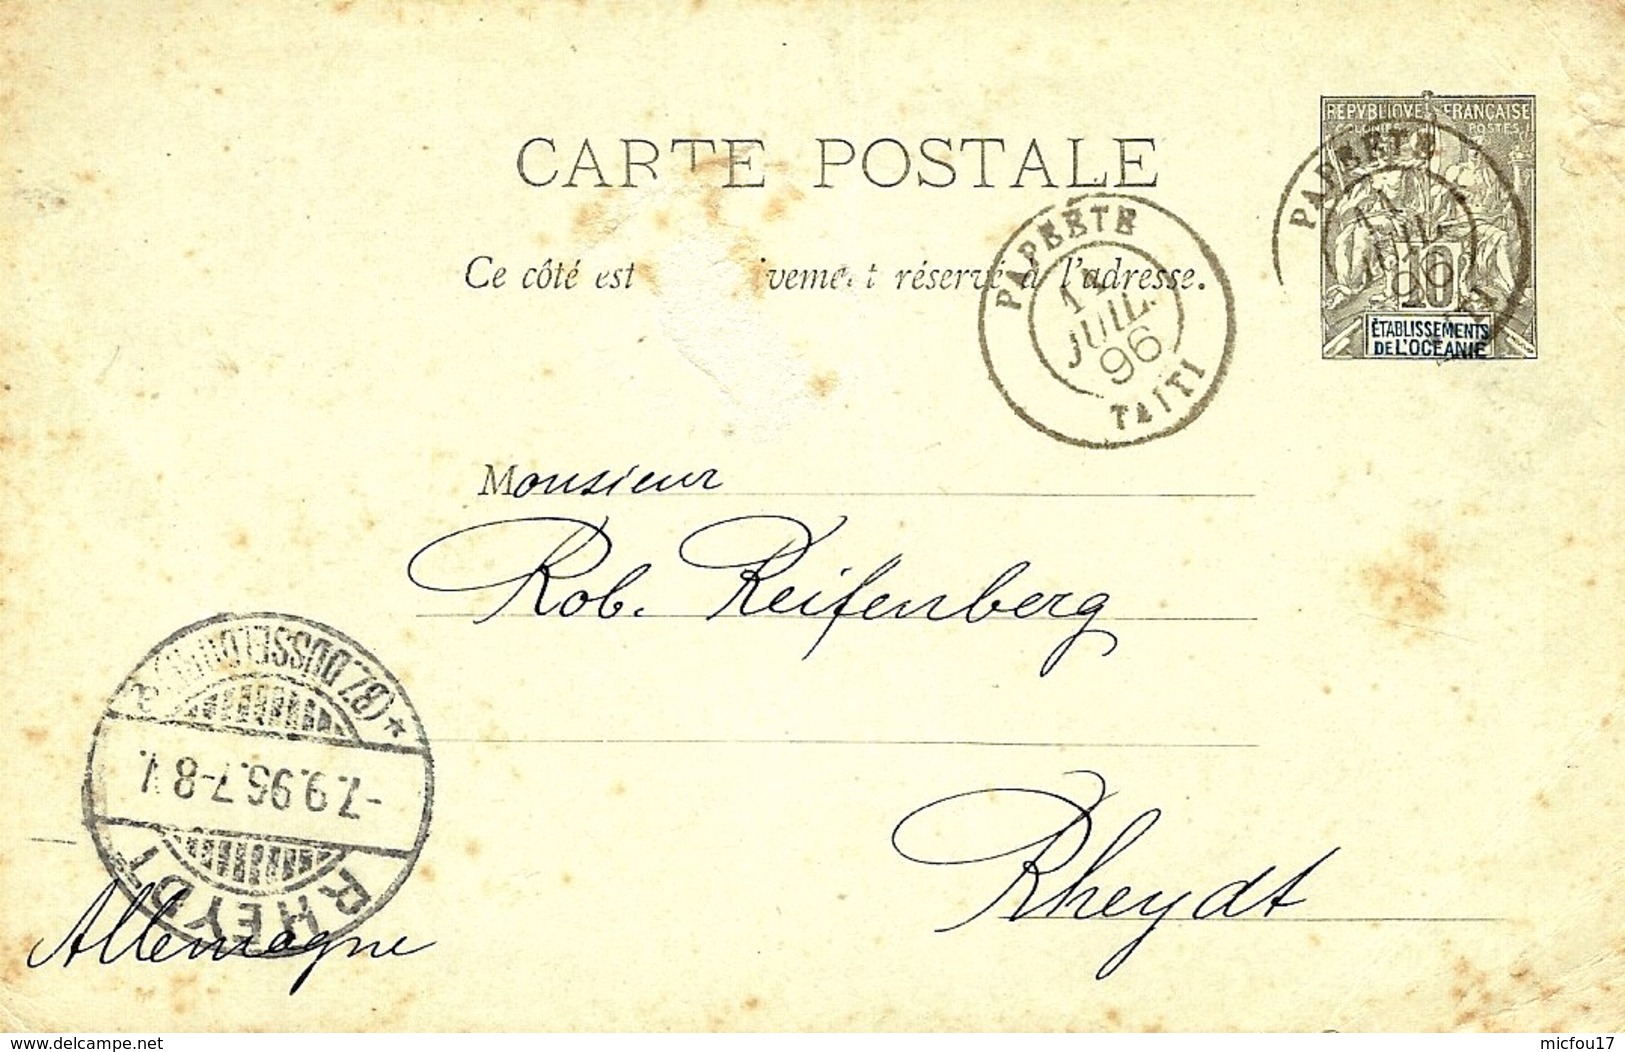 REPVBLIQVE FRANÇAISE
COLONIES POSTES
10
ÉTABLISSEMENTS
DE L'OCÉANIE
CARTE POSTALE
Ce côté est ivement réservé à l'adresse.
PAPEETE
11
JUIL.
96
TAITI
PAPEETE
JUIL
96
Monsieur
Rob. Reifenberg
Rheydt
Allemagne
RHEYDT
-7.9.96.7-8 V.
*(BZ. DÜSSELDORF) a
delcampe.net
micfou17